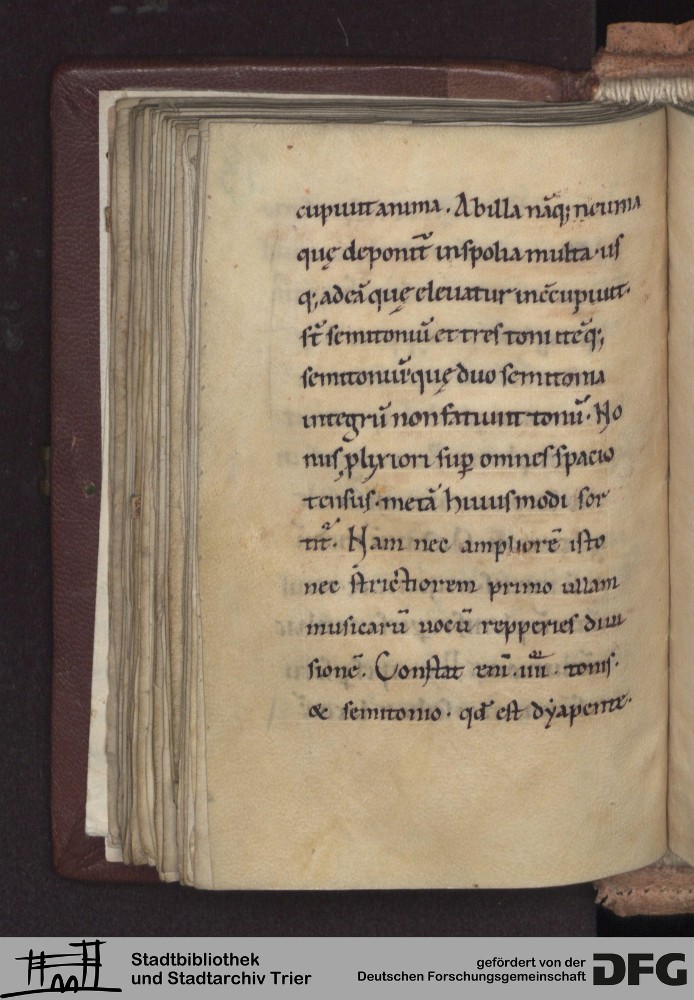 cupiuit anima. Ab illa nãq; neuma
quę deponit̃ in spolia multa. us
q; ad eã quę eleuatur in c̃cupiuit.
st̃ semitoniũ et tres toni iteq̃;
semitoniũ. quę duo semitonia
integrũ non fatiunt tonũ. No
nus ꝓlixiori suꝑ omnes spacio
tensus. metã huiusmodi sor
tit̃. Nam nec ampliorẽ isto
nec strictiorem primo ullam
musicarũ uocũ repperies diui
sionẽ. Constat eni̅. iiii. tonis.
& semitonio. qđ est dẏapente.
Stadtbibliothek
und Stadtarchiv Trier
gefördert von der
Deutschen Forschungsgemeinschaft
DFG